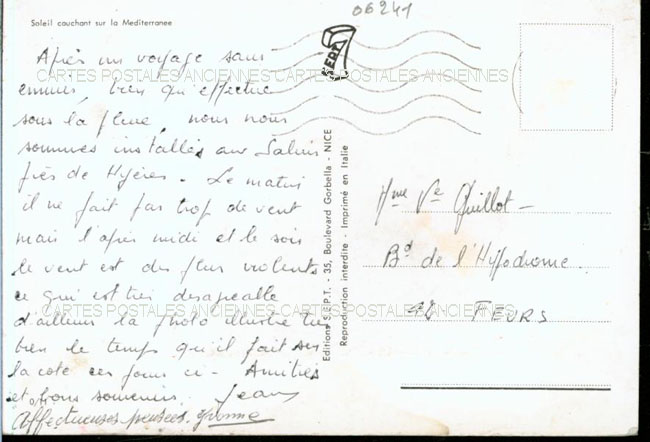 06241
Soleil couchant sur la Mediterranee
SEPT
Après un voyage sans
ennuis, bien qu'effectué
sous la pluie, nous nous
sommes installés aux Salins
près de Hyères - Le matin
il ne fait pas trop de vent
mais l'après midi et le soir
le vent est des plus violents
ce qui est très desagréable
d'ailleurs la photo illustre très
bien le temps qu'il fait sur
la cote ces jours ci - Amitiés
et bons souvenirs. Jean
Affectueuses pensées. Yvonne
CARTES POSTALES ANCIENNES CARTES POSTALES ANCIENNES
CARTES POSTALES ANCIENNES CARTES POSTALES ANCIENNES
Editions S.E.P.T. - 35, Boulevard Gorbella - NICE
Reproduction interdite - Imprimé en Italie
Mme Ve Guillot -
Bd de l'Hippodrome.
42 FEURS